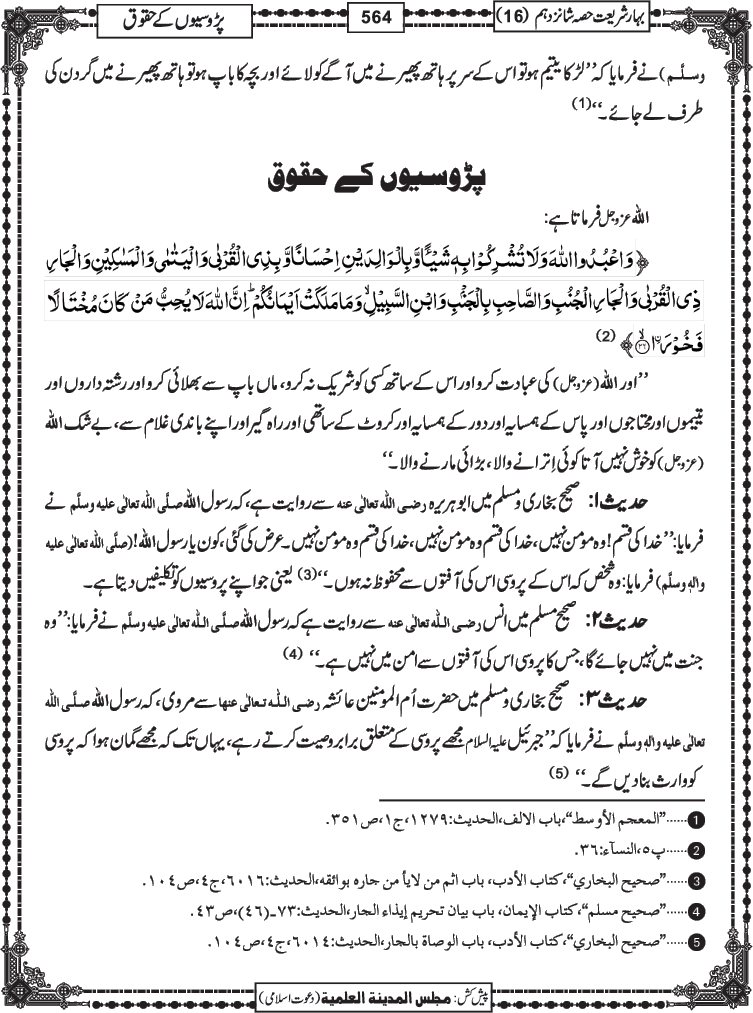 بہارِ شریعت حصہ شانزدہم (16)
564
پڑوسیوں کے حقوق
وسلَّم) نے فرمایا کہ ’’لڑکا یتیم ہو تو اس کے سر پر ہاتھ پھیرنے میں آگے کو لائے اور بچہ کا باپ ہو تو ہاتھ پھیرنے میں گردن کی
طرف لے جائے۔‘‘(1)
پڑوسیوں کے حقوق
اﷲ عزوجل فرماتا ہے:
﴿وَاعْبُدُوا اللهَ وَلَا تُشْرِكُوْا بِهٖ شَیْـًٔا وَّبِالْوَالِدَیْنِ اِحْسَانًا وَّبِذِی الْقُرْبٰی وَالْیَتٰمٰی وَالْمَسٰكِیْنِ وَالْجَارِ
ذِی الْقُرْبٰی وَالْجَارِ الْجُنُبِ وَالصَّاحِبِ بِالْجَنْۢبِ وَابْنِ السَّبِیْلِ ۙ وَمَا مَلَكَتْ اَیْمَانُكُمْ ؕ اِنَّ اللهَ لَا یُحِبُّ مَنْ كَانَ مُخْتَالًا
فَخُوْرَا ۙ﴿۳۶﴾﴾ (2)
’’اور اﷲ (عزوجل) کی عبادت کرو اور اس کے ساتھ کسی کو شریک نہ کرو، ماں باپ سے بھلائی کرو اور رشتہ داروں اور
یتیموں اور محتاجوں اور پاس کے ہمسایہ اور دور کے ہمسایہ اور کروٹ کے ساتھی اور راہ گیر اور اپنے باندی غلام سے، بے شک اﷲ
(عزوجل) کو خوش نہیں آتا کوئی اِترانے والا، بڑائی مارنے والا۔‘‘
حدیث ۱: صحیح بخاری و مسلم میں ابوہریرہ رضی اللہ تعالٰی عنہ سے روایت ہے، کہ رسول اﷲ صلَّی اللہ تعالٰی علیہ وسلَّم نے
فرمایا: ’’خدا کی قسم! وہ مومن نہیں، خدا کی قسم وہ مومن نہیں، خدا کی قسم وہ مومن نہیں۔ عرض کی گئی، کون یارسول اﷲ! (صلَّی اللہ تعالٰی علیہ
واٰلہٖ وسلَّم) فرمایا: وہ شخص کہ اس کے پروسی اس کی آفتوں سے محفوظ نہ ہوں۔‘‘(3) یعنی جو اپنے پروسیوں کو تکلیفیں دیتا ہے۔
حدیث ۲: صحیح مسلم میں انس رضی اللہ تعالٰی عنہ سے روایت ہے کہ رسول اﷲ صلَّی اللہ تعالٰی علیہ وسلَّم نے فرمایا: ’’وہ
جنت میں نہیں جائے گا، جس کا پروسی اس کی آفتوں سے امن میں نہیں ہے۔‘‘ (4)
حدیث ۳: صحیح بخاری و مسلم میں حضرت اُم المومنین عائشہ رضی اللہ تعالٰی عنہا سے مروی، کہ رسول اﷲ صلَّی اللہ
تعالٰی علیہ واٰلہٖ وسلَّم نے فرمایا کہ ’’جبرئیل علیہ السلام مجھے پروسی کے متعلق برابر وصیت کرتے رہے، یہاں تک کہ مجھے گمان ہوا کہ پروسی
کو وارث بنادیں گے۔‘‘ (5)
1 ......"المعجم الأوسط"،باب الالف،الحدیث:۱۲۷۹،ج۱،ص۳۵۱.
2 ......پ۵،النسآء:۳۶.
3 ......"صحیح البخاري"،کتاب الأدب، باب اثم من لایأ من جارہ بوائقہ،الحدیث:۶۰۱۶،ج٤،ص۱۰٤.
4 ......"صحیح مسلم"، کتاب الإیمان، باب بیان تحریم إیذاء الجار،الحدیث:۷۳۔(٤٦)،ص٤٣.
5 ......"صحیح البخاري"،کتاب الأدب، باب الوصاۃ بالجار،الحدیث:۶۰۱٤،ج٤،ص۱۰٤.
پیش کش: مجلس المدینۃ العلمیۃ (دعوت اسلامی)